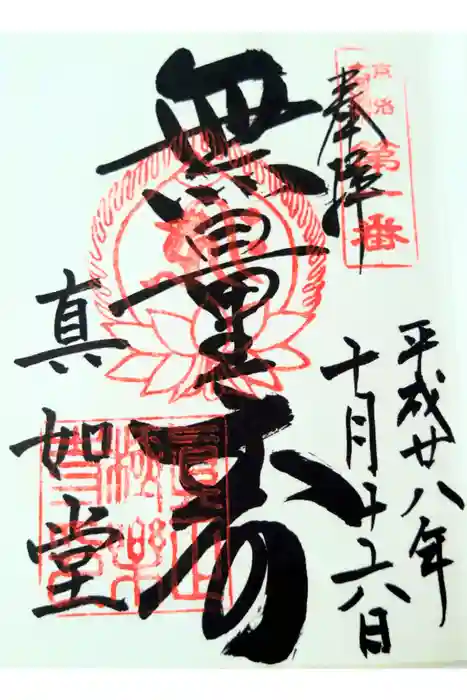 奉拝
第一番
平成廿八年
十月十六日
無量寿
真如堂
真正
極楽